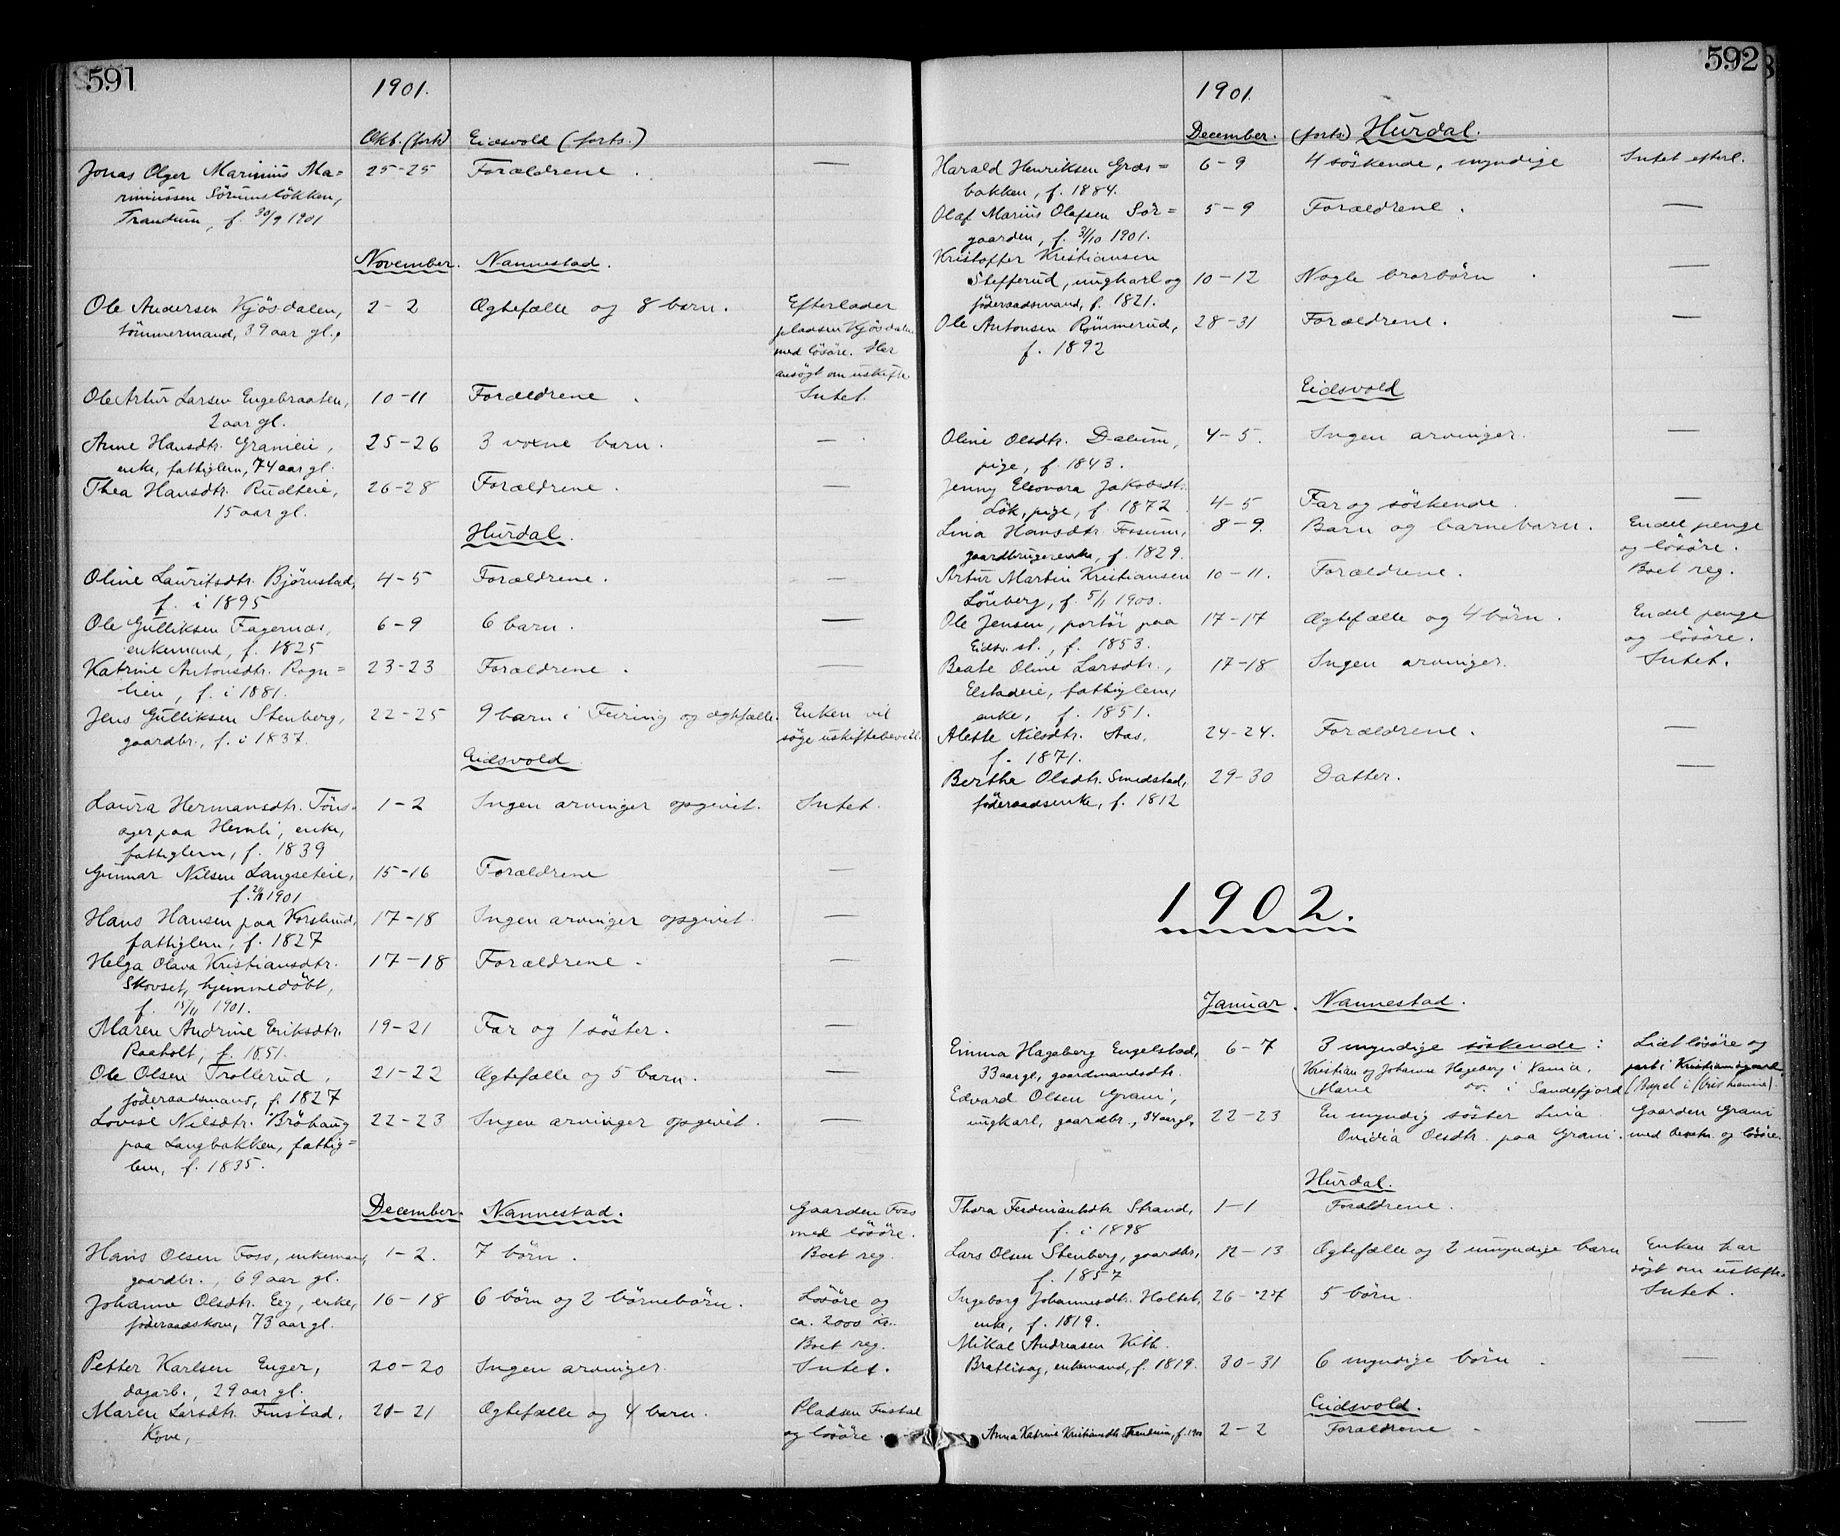 591
1901.
Okt. (forts) Eidsvold (forts.)
Jonas Olger Marinius Ma= 25-25 Forældrene. —
rinussen Sörumsløkken,
Trandum, f. 30/9 1901
November. Nannestad.
Ole Andersen Kjösdalen, 2-2 Ægtefælle og 8 barn. Efterlader
tömmermand, 39 aar gl., pladsen Kjösdalen
med lösöre. Har
ansögt om uskifte
Ole Artur Larsen Engebraaten, 10-11 Forældrene. Intet.
2 aar gl.
Anne Hansdtr. Granieie, 25-26 3 voxne barn. —
enke, fattiglem, 74 aar gl.
Thea Hansdtr. Rudteie, 26-28 Forældrene. —
15 aar gl.
Hurdal.
Oline Lauritsdtr. Björnstad, 4-5 Forældrene. —
f. i 1895
Ole Gulliksen Fagernæs, 6-9 6 barn. —
enkemand, f. 1825
Katrine Antonsdtr. Rogn= 23-23 Forældrene. —
lien, f. i 1881.
Jens Gulliksen Stenberg, 22-25 9 barn i Feiring og ægtefælle. Enken vil
gaardbr., f. i 1837. söge uskiftebevill.
Eidsvold
Laura Hermansdtr. Töns- 1-2 Ingen arvinger opgivet. Intet.
ager paa Hemli, enke,
fattiglem, f. 1839
Gunnar Nilsen Langseteie, 15-16 Forældrene —
f. 1901
Hans Hansen paa Korslund, 17-18 Ingen arvinger opgivet. —
fattiglem, f. 1827
Helga Olava Kristiansdtr. 17-18 Forældrene. —
Skovset, hjemmedöbt,
f. 15/11 1901.
Maren Andrine Eriksdtr. 19-21 Far og 1 söster. —
Raaholt, f. 1851.
Ole Olsen Trollerud, 21-22 Ægtefælle og 5 barn. —
föderaadsmand, f. 1827
Lovise Nilsdtr. Bröhaug 22-23 Ingen arvinger opgivet. —
paa Langbakken, fattig=
lem, f. 1835.
December. Nannestad. Gaarden Foss
med lösöre.
Hans Olsen Foss, enkemand, 1-2. 7 börn. Boet reg.
gaardbr., 69 aar gl.
Johanne Olsdtr. Eeg, enke, 16-18 6 börn og 2 börnebörn. Lösöre og
föderaadskone, 73 aar gl. ca. 2000 kr.
Boet reg.
Petter Karlsen Enger, 20-20 Ingen arvinger. Intet.
dagarb., 29 aar gl.
Maren Larsdtr. Finstad, 21-21 Ægtefælle og 4 barn. Pladsen Finstad
Kone, og lösöre.
592
1901.
December. (forts.) Hurdal.
Harald Henriksen Græs= 6-9 4 söskende, myndige Intet efterl.
bakken, f. 1884.
Olaf Marius Olafsen Sör= 5-9 Forældrene. —
gaarden, f. 31/10 1901.
Kristoffer Kristiansen
Stefferud, ungkarl og 10-12 Nogle brorbörn —
föderaadsmand, f. 1821.
Ole Antonsen Römmerud, 28-31 Forældrene. —
f. 1892
Eidsvold
Oline Olsdtr. Dalum, 4-5. Ingen arvinger. —
pige, f. 1843.
Jenny Eleonora Jakobsdt.
Lök, pige, f. 1872 4-5 Far og söskende. —
Lina Hansdtr. Fossum, 8-9 Barn og barnebarn. Endel penge
gaardbrugerenke, f. 1829. og lösöre.
Artur Martin Kristiansen 10-11. Forældrene. Boet reg.
Lönberg, f. 5/1 1900.
Ole Jensen, portör paa 17-17 Ægtefælle og 4 börn. Endel penge
Eidsv. st., f. 1853. og lösöre.
Beate Oline Larsdtr., 17-18 Ingen arvinger. Intet.
Elstadeie, fattiglem,
enke, f. 1851.
Alette Nilsdtr. Aas, 24-24. Forældrene. —
f. 1871.
Berthe Olsdtr. Smedstad, 29-30 Datter. —
föderaadsenke, f. 1812
1902.
Januar. Nannestad.
Emma Hageberg Engelstad, 6-7 3 myndige söskende: Lidt lösöre og
33 aar gl., gaardmandsdtr. Kristian og Johanne Hageberg i Kania, part i Kristianiagaard
Marie do. i Sandefjord (Bopæl i Kristiania).
Edvard Olsen Grani,
ungkarl, gaardbr., 34 aar gl. 22-23 En myndig söster Lina Gaarden Grani
Ovidia Olsdtr. paa Grani. med besetn. og lösöre.
Hurdal.
Thora Ferdinantsdtr Strand, 1-1 Forældrene.
f. i 1898
Lars Olsen Stenberg, gaardbr., 12-13 Ægtefælle og 2 umyndige barn Enken har
f. 1857 sögt om uskifte.
Ingeborg Johannesdtr. Holtet, 26-27 5 börn. Intet.
enke, f. 1819.
Mikal Andreasen Kith.
Bratlisag, enkemand, f. 1819. 30-31 6 myndige börn. —
Eidsvold.
Anna Katrine Kristiansdtr. Trandum, f. 1900 2-2 Forældrene. —